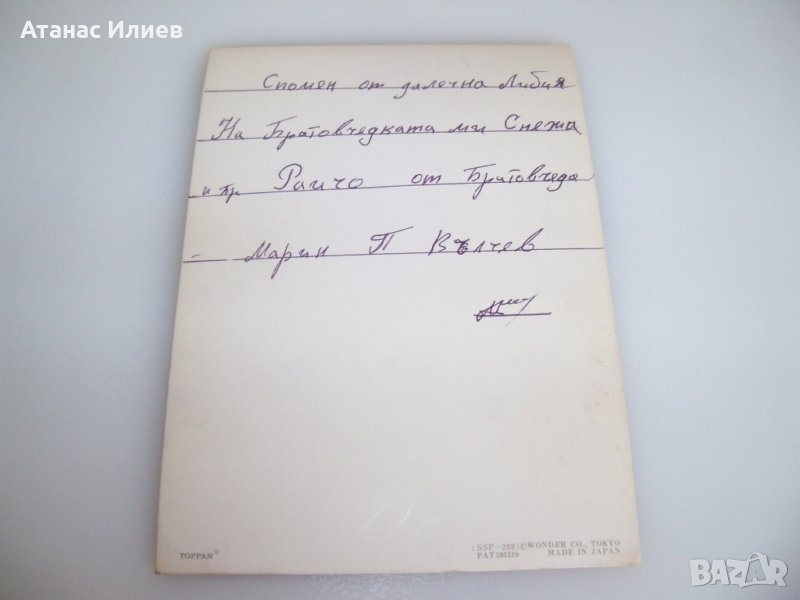 Атанас Илиев
Спомен от далечна Либия
На Братовчедката ми Снежа
и бр Раичо от Братовчеда
- Марин П Вълчев
TOPPAN®
(SSP-288) ©WONDER CO., TOKYO
PAT 591219 MADE IN JAPAN
BAZAR